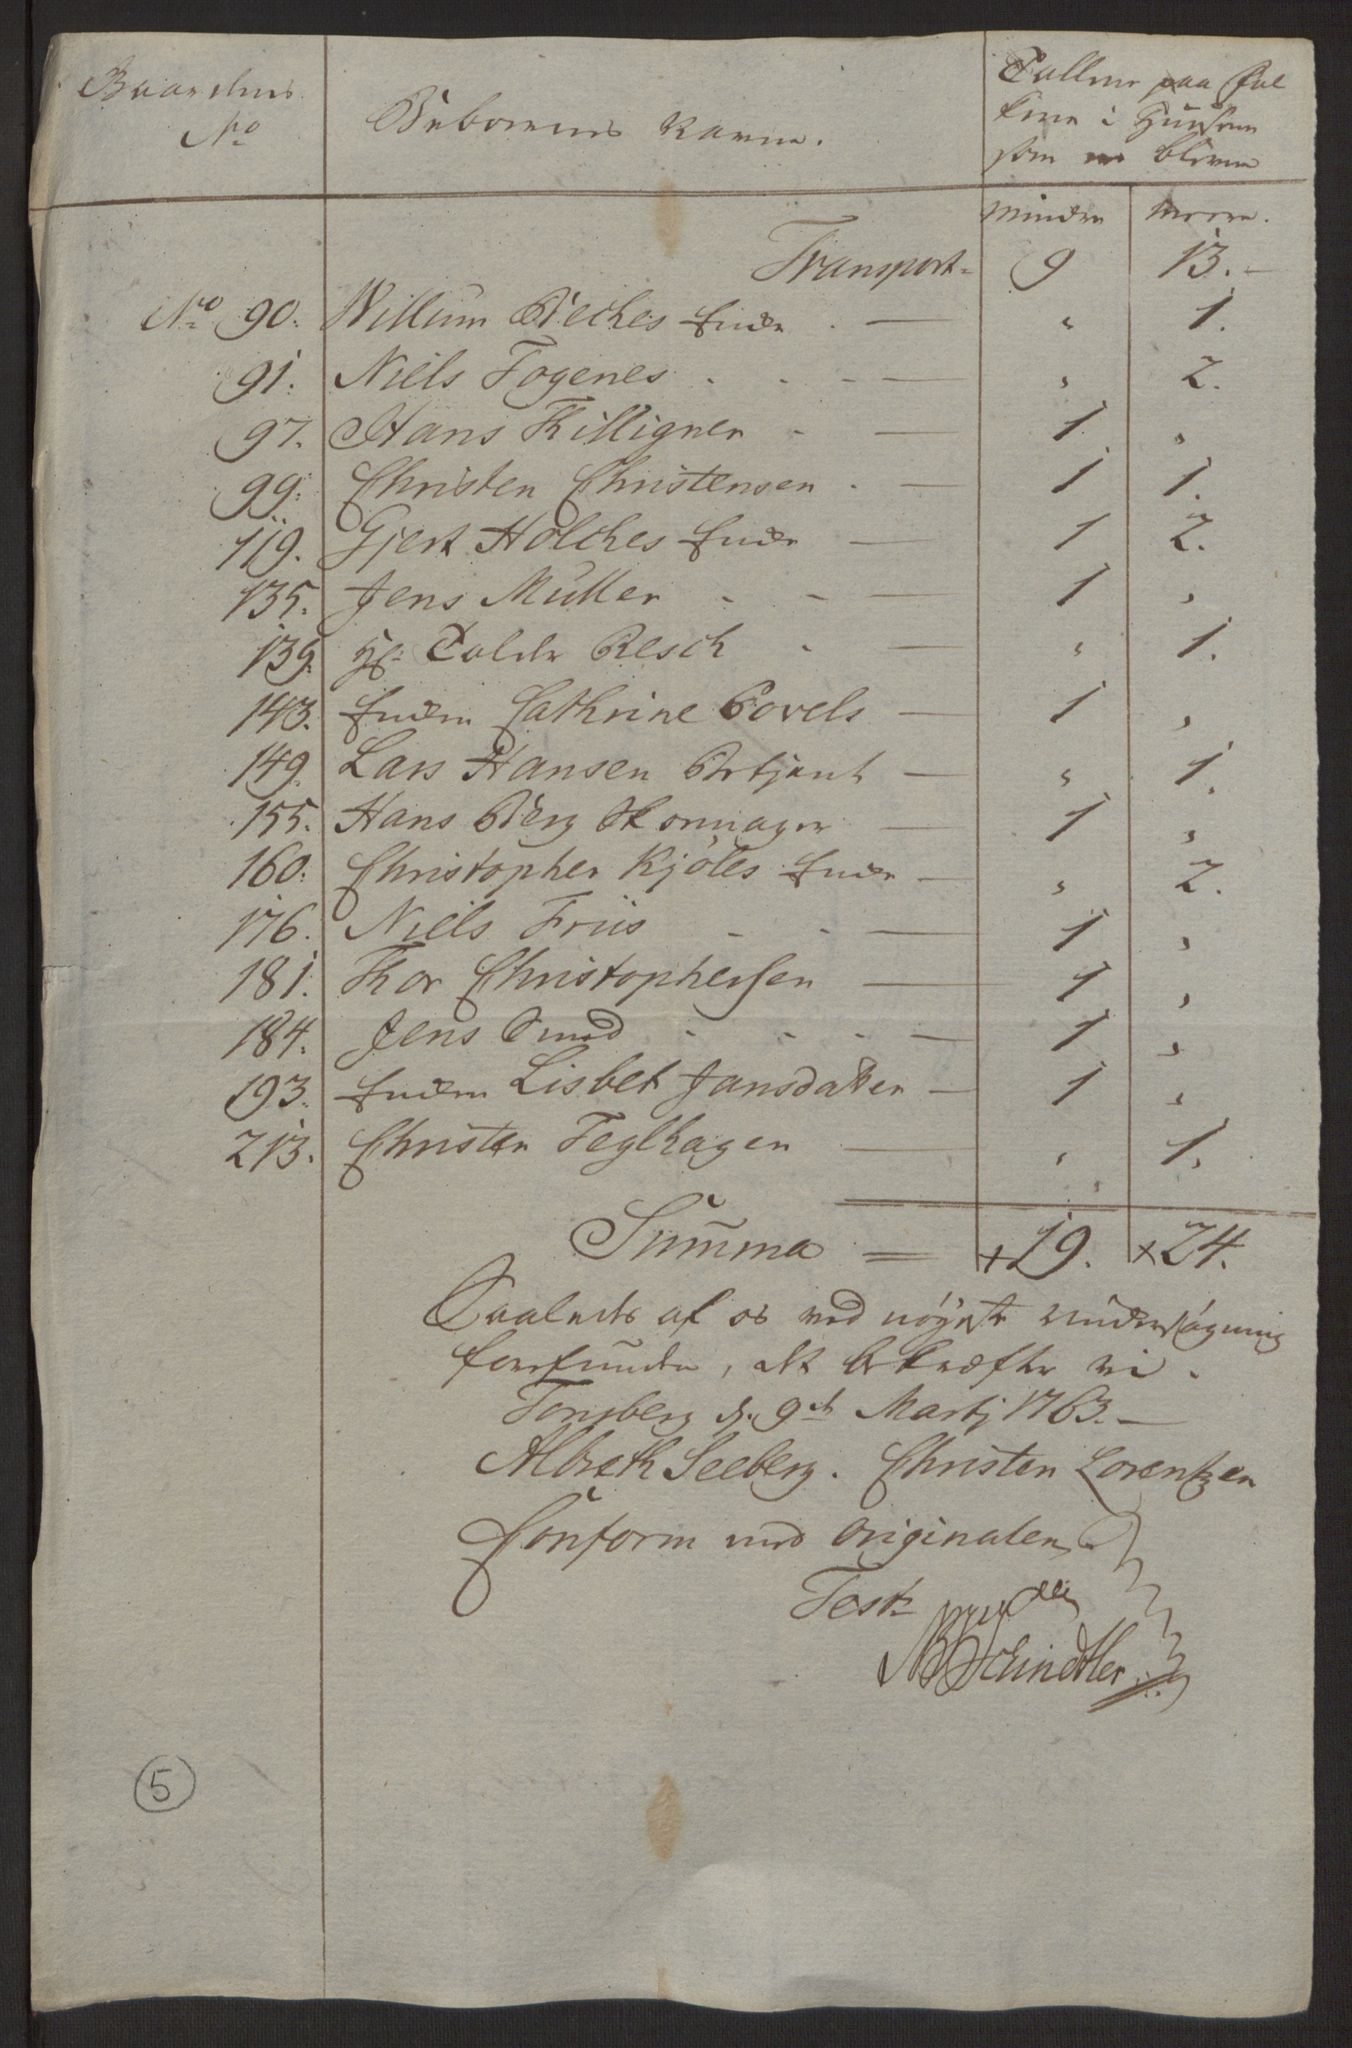 Gaardens
No
Beboernes Navne.
Tallene paa Fol
kene i Huusene
som er bleven
Mindre
meere.
Transport 9 13.
No 90. Willum Beches Encke . — " 1.
91. Niels Fogenes . . . — " 2.
97. Hans Killigner . — 1 "
99. Christen Christensen . — 1 1.
119. Gjert Holches Encke — 1 2.
135. Jens Müller . . — 1 "
139. Hr: Tolder Resch . — " 1.
143. Encken Cathrine Povels — 1 "
149. Lars Hansen Betjent — " 1.
155. Hans Berg Skomager — 1 "
160. Christopher Kjöles Encke — " 2.
176. Niels Friis . . — 1 "
181. Thor Christophersen — 1 "
184. Jens Smed . . . — 1 "
193. Encken Lisbet Jansdatter — 1 "
213. Christen Teglhagen — " 1.
Summa = + 19. × 24.
Saaledes af os ved nöyeste Undersögning
forefunden, alt bekræfter vi.
Tonsberg d. 9de Martj 1763. —
Albreth Seeberg. Christen Lorentzen
Conform med Originalen
Test.
Schindtler
5